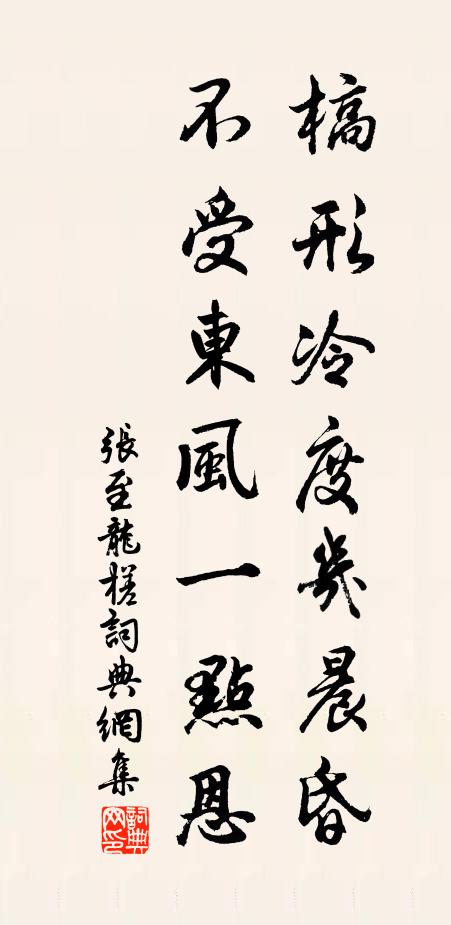 槁形冷度幾晨昏
不受東風一點恩
張至龍槎詞典網集
詞典網印